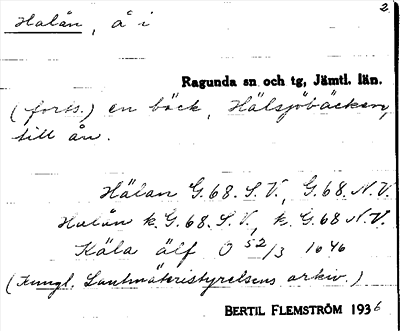 2
Halån, å i
Ragunda sn och tg, Jämtl. län.
(forts.) en bäck, Hälsjöbäcken,
till ån.
Hälan G.68.S.V., G.68.N.V.
Halån k G.68.S.V., k. G.68 N.V.
Käla älf O 52/3 1646
(Kungl. Lantmäteristyrelsens arkiv.)
BERTIL FLEMSTRÖM 1936